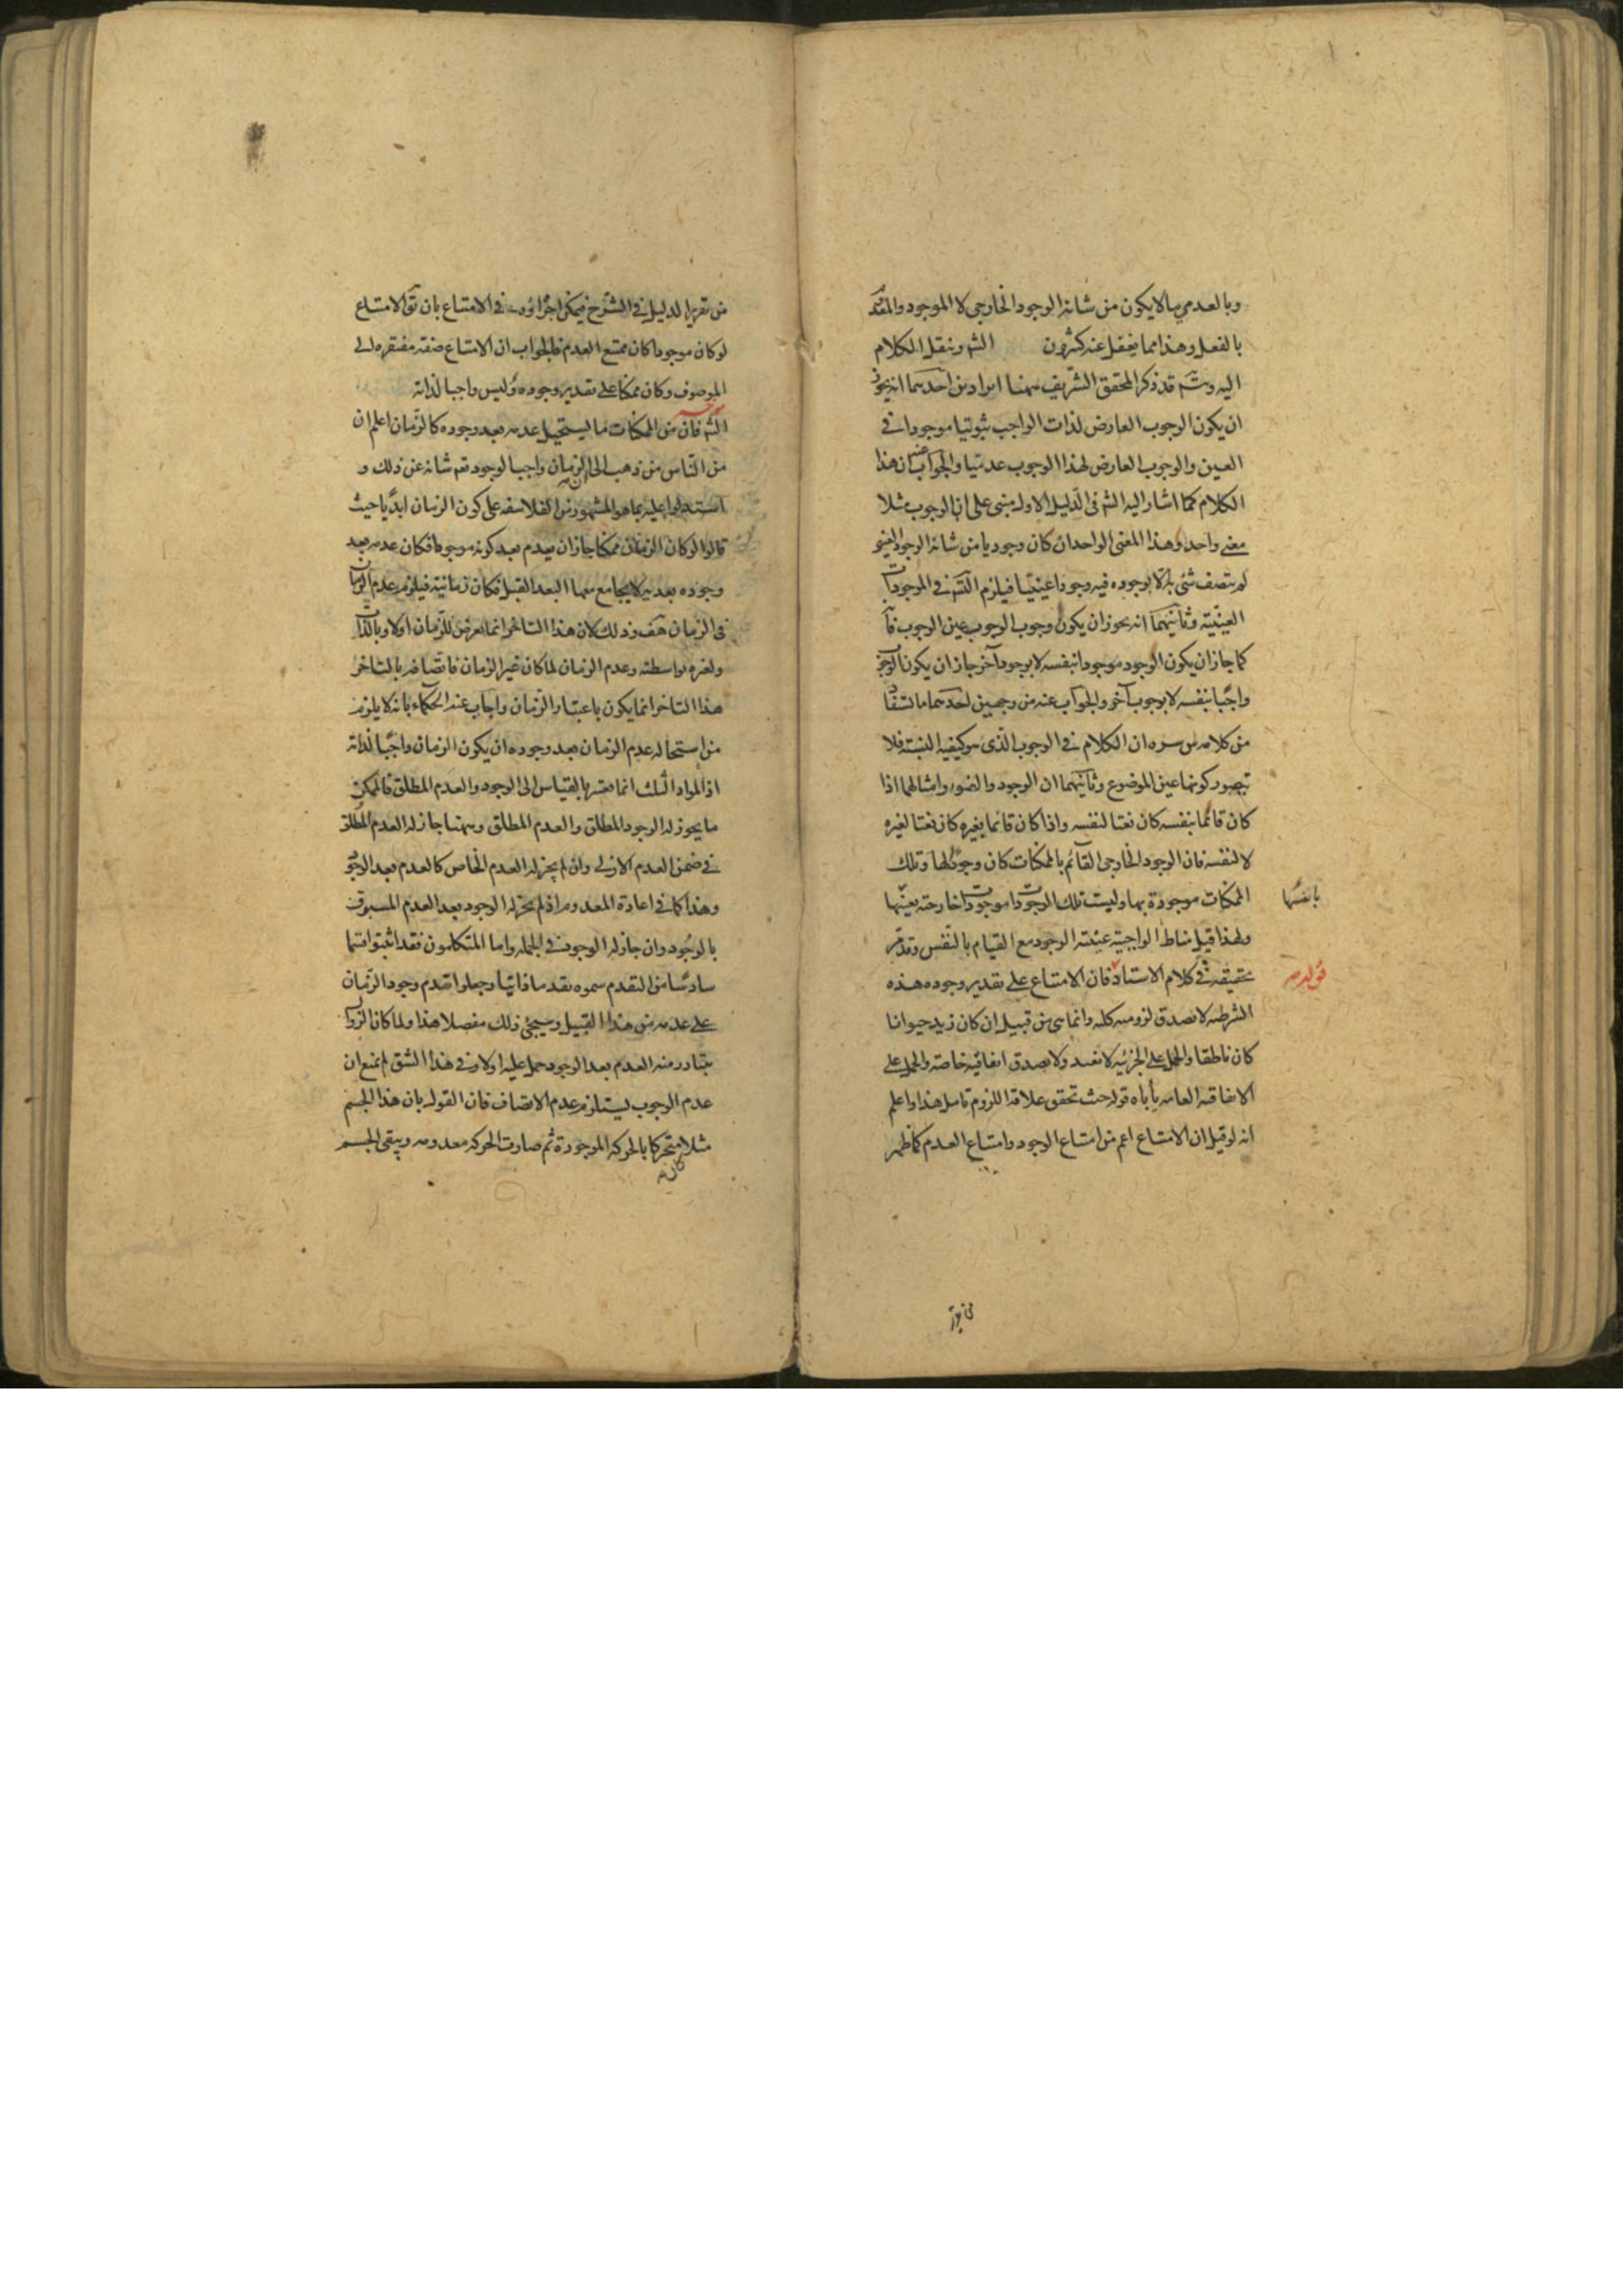 وبالعدمي ما لا يكون من شانه الوجود الخارجي لا الموجود والمعدوم
بالفعل وهذا مما يغفل عنه كثيرون الشر وننقل الكلام
اليه وتم قد ذكر المحقق الشريف ههنا ايرادين احدهما انه يجوز
ان يكون الوجوب العارض لذات الواجب ثبوتيا موجودا في
العين والوجوب العارض لهذا الوجوب عدميا والجواب ان هذا
الكلام كما اشار اليه الشر في الدليل الاول مبنى على ان الوجوب مثلا
معنى واحد وهذا المعنى الواحد ان كان وجوديا من شانه الوجود العيني
لم يتصف شئ به الا بوجوده فيه وجودا عينيا فيلزم التس في الموجودات
العينية وثانيهما انه يجوز ان يكون وجوب الوجوب عين الوجوب
كما جاز ان يكون الوجود موجودا بنفسه لا بوجود آخر جاز ان يكون الوجوب
واجبا بنفسه لا بوجوب آخر والجواب عنه من وجهين احدهما
من كلامه س سره ان الكلام في الوجوب الذى هو كيفية النسبة فلا
يتصور كونها عين الموضوع وثانيهما ان الوجود والضوء وامثالهما اذا
كان قائما بنفسه كان نعتا لنفسه واذا كان قائما بغيره كان نعتا لغيره
لا لنفسه فان الوجود الخارجي القائم بالممكنات كان وجودا لها وتلك
الممكنات موجودة بها وليست تلك الوجودات موجودات خارجة بعينها
بانفسها
ولهذا قيل مناط الواجبية عينية الوجود مع القيام بالنفس وقد مر
تحقيقه في كلام الاستاد فان الامتناع على تقدير وجوده هذه
قوله
الشرطية لا تصدق لزومية كلية وانما هى من قبيل ان كان زيد حيوانا
كان ناطقا والحمل على الجزئية لا تفيد ولا يصدق اتفاقية خاصة والحمل على
الاتفاقية العامة يأباه قوله حيث تحقق علاقة اللزوم تامل هذا واعلم
انه لو قيل ان الامتناع اعم من امتناع الوجود وامتناع العدم كما ظهر
من تقرير الدليل في الشرح فيمكن اجراؤه في الامتناع بان يق الامتناع
لو كان موجودا كان ممتنع العدم فالجواب ان الامتناع صفة مفتقرة الى
الموصوف وكان ممكنا على تقدير وجوده وليس واجبا لذاته
الشر فان من الممكنات ما يستحيل عدمه بعد وجوده كالزمان اعلم ان
من الناس من ذهب الى ان الزمان واجب الوجود تعه شانه عن ذلك و
استدلوا عليه بما هو المشهور من الفلاسفة على كون الزمان ابديا حيث
قالوا لو كان الزمان ممكنا جاز ان يعدم بعد كونه موجودا فكان عدمه بعد
وجوده بعدية لا يجامع معها البعد القبل فكان زمانية فيلزم عدم الزمان
في الزمان هف وذلك لان هذا التاخر انما يعرض للزمان اولا وبالذات
ولغيره بواسطته وعدم الزمان لما كان غير الزمان فاتصافه بالتاخر
هذا التاخر انما يكون باعتبار الزمان واجاب عنه الحكماء بانه لا يلزم
من استحالة عدم الزمان بعد وجوده ان يكون الزمان واجبا لذاته
اذ المواد الثلث انما تعتبر بالقياس الى الوجود والعدم المطلق فالممكن
ما يجوز له الوجود المطلق والعدم المطلق وههنا جاز له العدم المطلق
في ضمن العدم الازلى وان لم يجز له العدم الخاص كالعدم بعد الوجود
وهذا كما في اعادة المعدوم اذ لم يجز له الوجود بعد العدم المسبوق
بالوجود وان جاز له الوجود في الجملة واما المتكلمون فقد اثبتوا قسما
سادسا من التقدم سموه تقدما ذاتيا وجعلوا تقدم وجود الزمان
على عدمه من هذا القبيل وسيجئ ذلك مفصلا هذا ولما كان الزوال
يتبادر منه العدم بعد الوجود حمل عليه اولا وفي هذا الشق لم نمنع ان
عدم الوجوب يستلزم عدم الاتصاف فان القول بان هذا الجسم
مثلا كان متحركا بالحركة الموجودة ثم صارت الحركة معدومة ويبقى الجسم